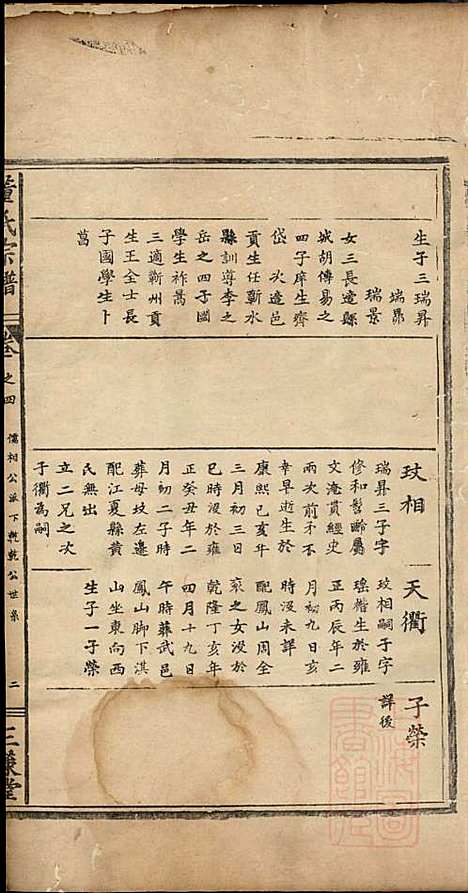 生子三瑞昇
瑞昴
瑞景
女三長適縣
城胡傳易之
四子庠生齊
岱次適邑
貢生任蘄水
縣訓導李之
岳之四子國
學生祚嵩
三適蘄州貢
生王全士長
子國學生卜
蓦
玟相
瑞昇三子字
修和髫齡屬
文淹貫經史
兩次前矛不
幸早逝生於
康熙己亥年
三月初三日
巳時没於雍
正癸丑年二
月初二子時
葬母坟左邊
配江夏縣黄
氏無出
立二兄之次
子衢為嗣
天衢
玟相嗣子字
瑤楷生於雍
正丙辰年二
月初九日亥
時没未詳
配鳳山周全
衮之女没於
乾隆丁亥年
四月十九日
午時葬武邑
鳳山脚下淇
山坐東向西
生子一子榮
子榮
詳後
氏宗譜
卷之四
儒相公派下
乾公世系
二
三
堂